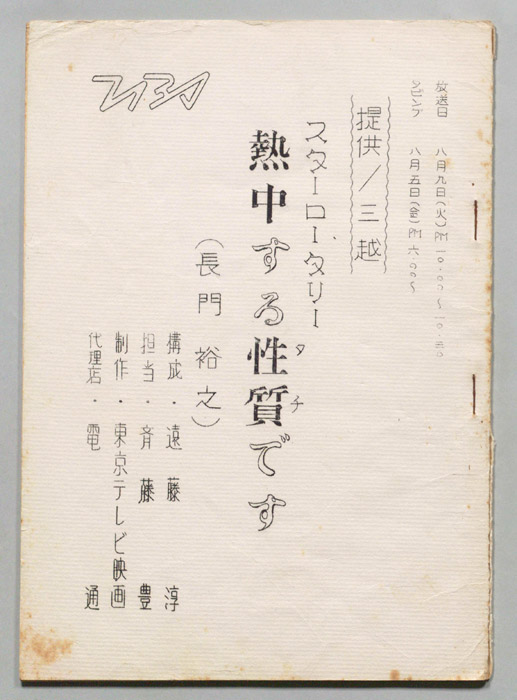 放送日 八月九日(火)PM一〇・〇〇〜一〇・三〇
八月五日(金)PM六・〇〇〜
提供/三越
スターロータリー
熱中する性質です
タチ
(長門裕之)
構成・遠藤淳
担当・斉藤豊
制作・東京テレビ映画
代理店・電通